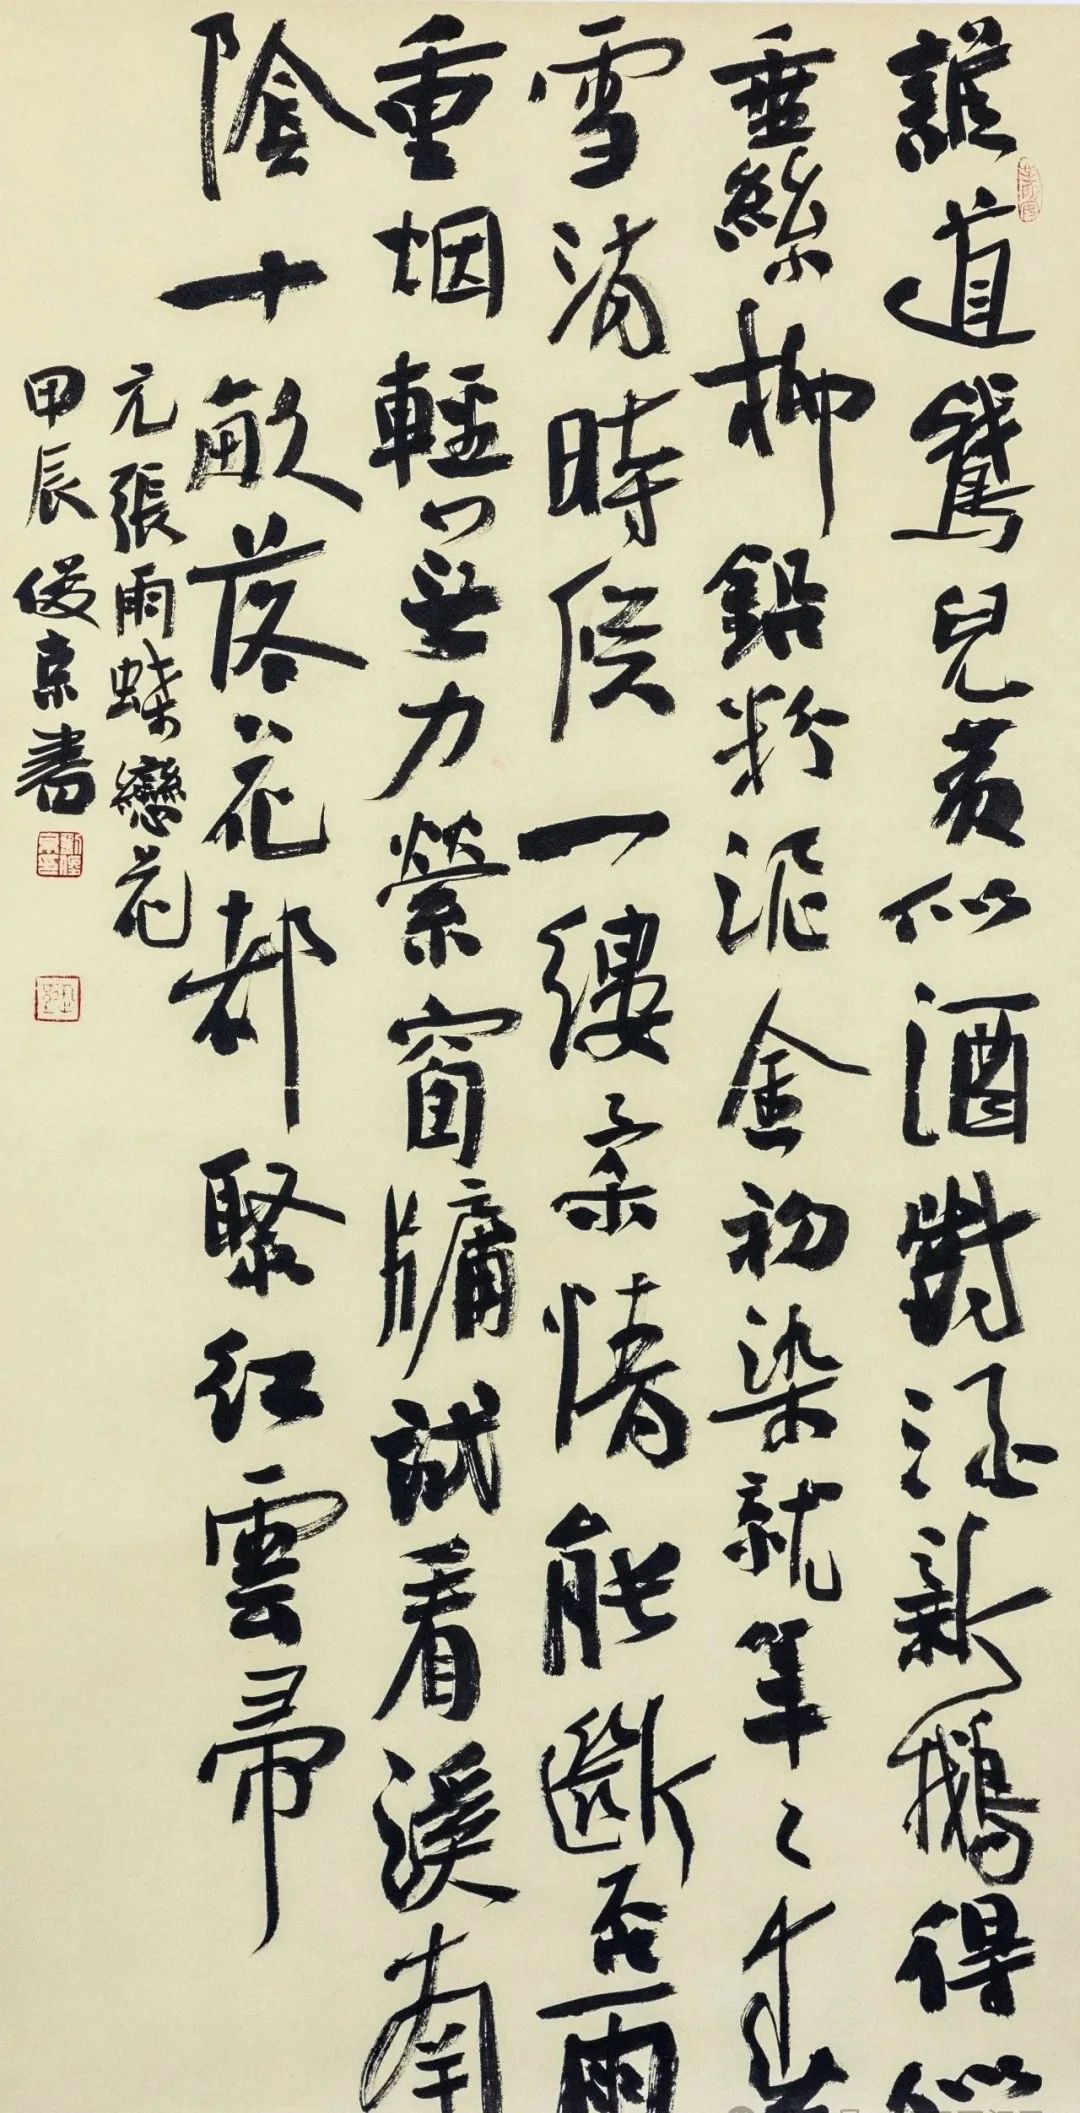 誰道鵞兒黃似酒對酒新鵝得似
垂絲柳鉛粉泥金初染就年〻
雪消時候一縷柔情能斷否雨
重烟輕無力縈窗牖試看溪南
陰十畝落花都聚紅雲帚
元張雨蝶戀花
甲辰俊京書